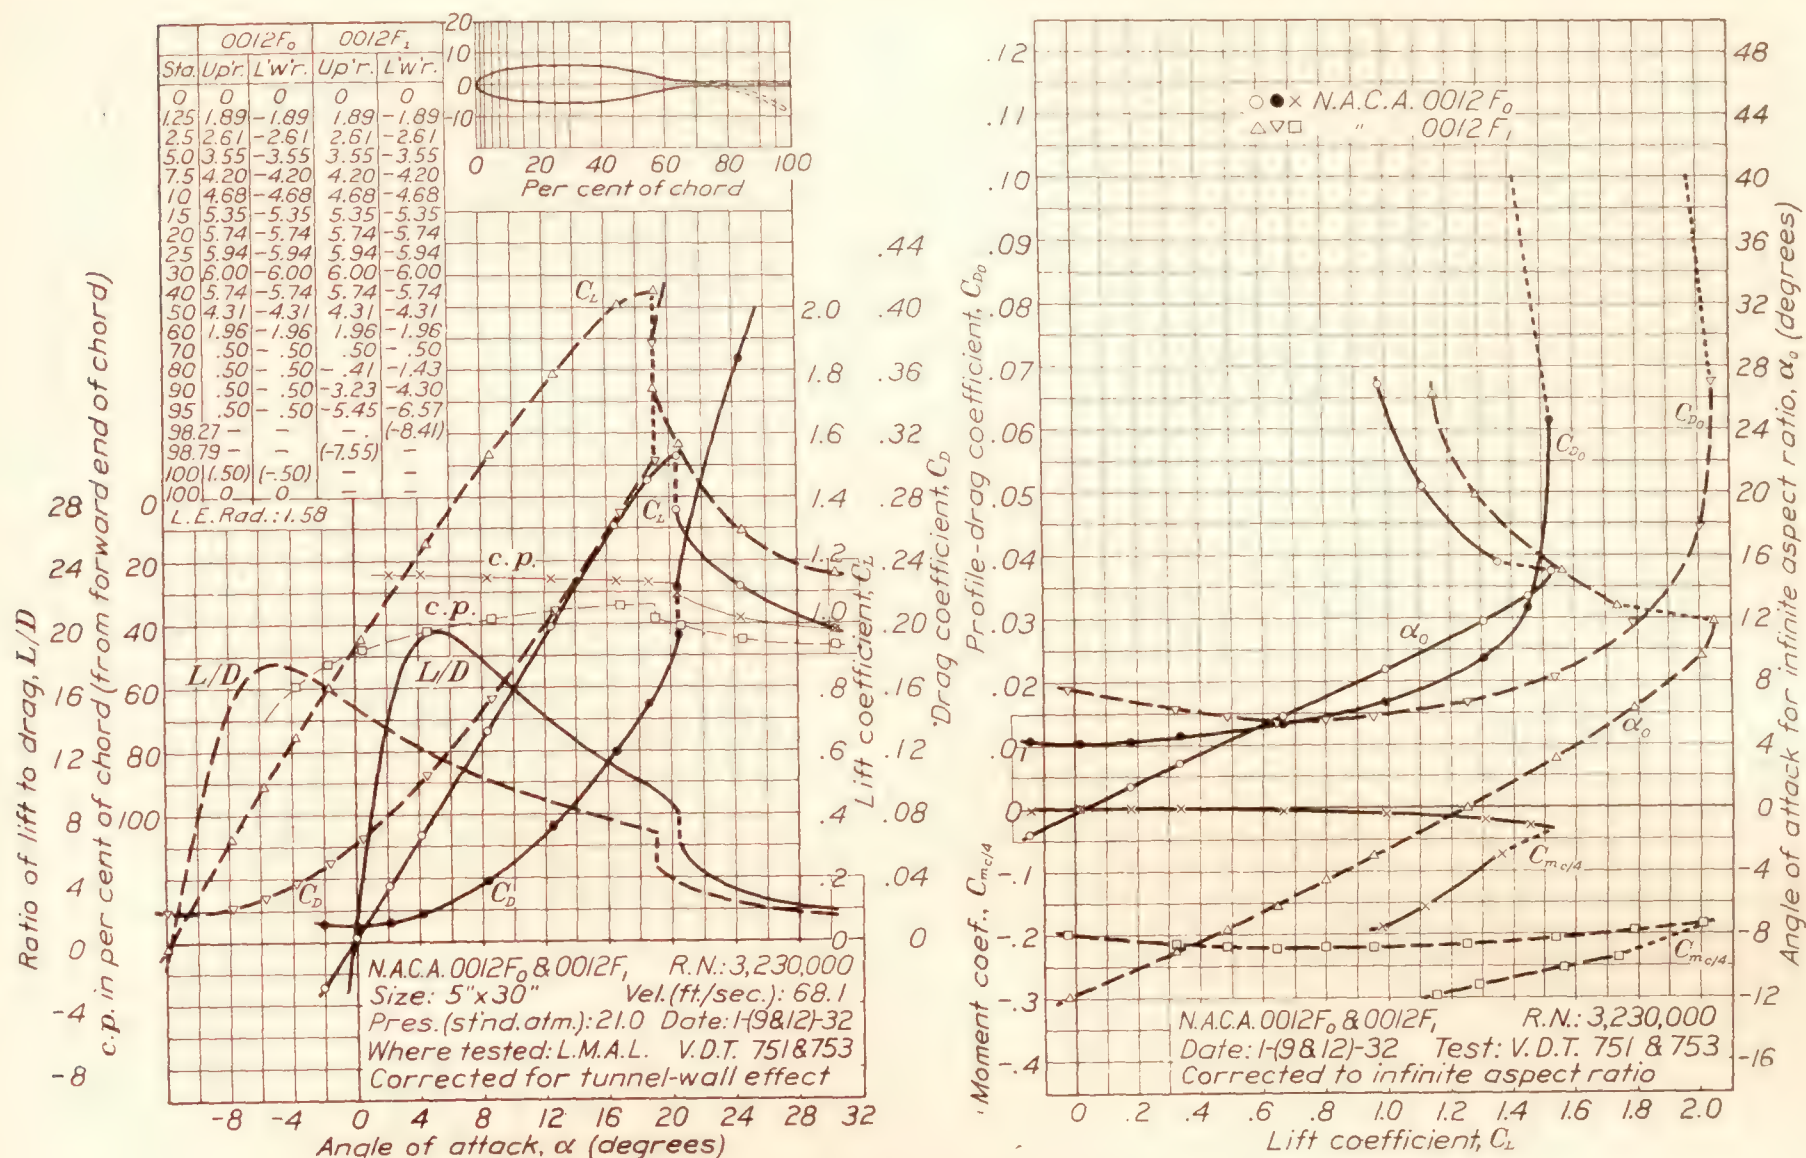 0012F₀ 0012F₁
Sta. Up'r. L'w'r. Up'r. L'w'r.
0 0 0 0 0
1.25 1.89 -1.89 1.89 -1.89
2.5 2.61 -2.61 2.61 -2.61
5.0 3.55 -3.55 3.55 -3.55
7.5 4.20 -4.20 4.20 -4.20
10 4.68 -4.68 4.68 -4.68
15 5.35 -5.35 5.35 -5.35
20 5.74 -5.74 5.74 -5.74
25 5.94 -5.94 5.94 -5.94
30 6.00 -6.00 6.00 -6.00
40 5.74 -5.74 5.74 -5.74
50 4.31 -4.31 4.31 -4.31
60 1.96 -1.96 1.96 -1.96
70 .50 - .50 .50 - .50
80 .50 - .50 - .41 -1.43
90 .50 - .50 -3.23 -4.30
95 .50 - .50 -5.45 -6.57
98.27 - - - (-8.41)
98.79 - - (-7.55) -
100 (.50) (-.50) - -
100 0 0 - -
L.E. Rad.: 1.58
20
10
0
-10
0 20 40 60 80 100
Per cent of chord
Ratio of lift to drag, L/D
28
24
20
16
12
8
4
0
-4
-8
c.p. in per cent of chord (from forward end of chord)
0
20
40
60
80
100
C_L
C_L
c.p.
c.p.
L/D
L/D
C_D
C_D
2.0
1.8
1.6
1.4
1.2
1.0
.8
.6
.4
.2
0
Lift coefficient, C_L
.44
.40
.36
.32
.28
.24
.20
.16
.12
.08
.04
0
Drag coefficient, C_D
N.A.C.A. 0012F₀ & 0012F₁ R.N.: 3,230,000
Size: 5"x30" Vel. (ft./sec.): 68.1
Pres. (st'nd. atm.): 21.0 Date: 1-(9&12)-32
Where tested: L.M.A.L. V.D.T. 751&753
Corrected for tunnel-wall effect
-8 -4 0 4 8 12 16 20 24 28 32
Angle of attack, α (degrees)
N.A.C.A. 0012F₀
" 0012F₁
Profile-drag coefficient, C_D₀
.12
.11
.10
.09
.08
.07
.06
.05
.04
.03
.02
.01
0
Moment coef., C_m c/4
-.1
-.2
-.3
-.4
C_D₀
C_D₀
α₀
α₀
C_m c/4
C_m c/4
48
44
40
36
32
28
24
20
16
12
8
4
0
-4
-8
-12
-16
Angle of attack for infinite aspect ratio, α₀ (degrees)
N.A.C.A. 0012F₀ & 0012F₁ R.N.: 3,230,000
Date: 1-(9&12)-32 Test: V.D.T. 751 & 753
Corrected to infinite aspect ratio
0 .2 .4 .6 .8 1.0 1.2 1.4 1.6 1.8 2.0
Lift coefficient, C_L